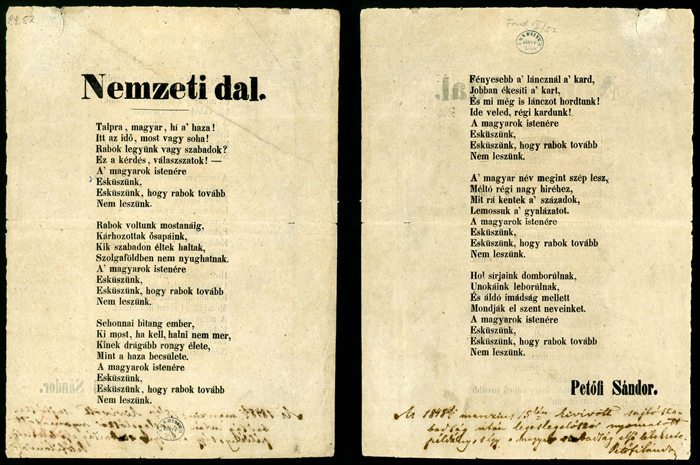 Nemzeti dal.
Talpra, magyar, hí a' haza!
Itt az idő, most vagy soha!
Rabok legyünk vagy szabadok?
Ez a' kérdés, válaszszatok! —
A' magyarok istenére
Esküszünk,
Esküszünk, hogy rabok tovább
Nem leszünk.
Rabok voltunk mostanáig,
Kárhozottak ősapáink,
Kik szabadon éltek haltak,
Szolgaföldben nem nyughatnak.
A' magyarok istenére
Esküszünk,
Esküszünk, hogy rabok tovább
Nem leszünk.
Sehonnai bitang ember,
Ki most, ha kell, halni nem mer,
Kinek drágább rongy élete,
Mint a haza becsülete.
A magyarok istenére
Esküszünk,
Esküszünk, hogy rabok tovább
Nem leszünk.
Fényesebb a' láncznál a' kard,
Jobban ékesíti a' kart,
És mi még is lánczot hordtunk!
Ide veled, régi kardunk!
A magyarok istenére
Esküszünk,
Esküszünk, hogy rabok tovább
Nem leszünk.
A' magyar név megint szép lesz,
Méltó régi nagy hiréhez,
Mit rá kentek a' századok,
Lemossuk a' gyalázatot.
A magyarok istenére
Esküszünk,
Esküszünk, hogy rabok tovább
Nem leszünk.
Hol sírjaink domborúlnak,
Unokáink leborúlnak,
És áldó imádság mellett
Mondják el szent neveinket.
A magyarok istenére
Esküszünk,
Esküszünk, hogy rabok tovább
Nem leszünk.
Petőfi Sándor.
Az 1848diki márczius 15kén kivívott sajtósza
badság után legeslegelőször nyomatott
példány, s így a magyar szabadság első lélekzete.
Petőfi Sándor